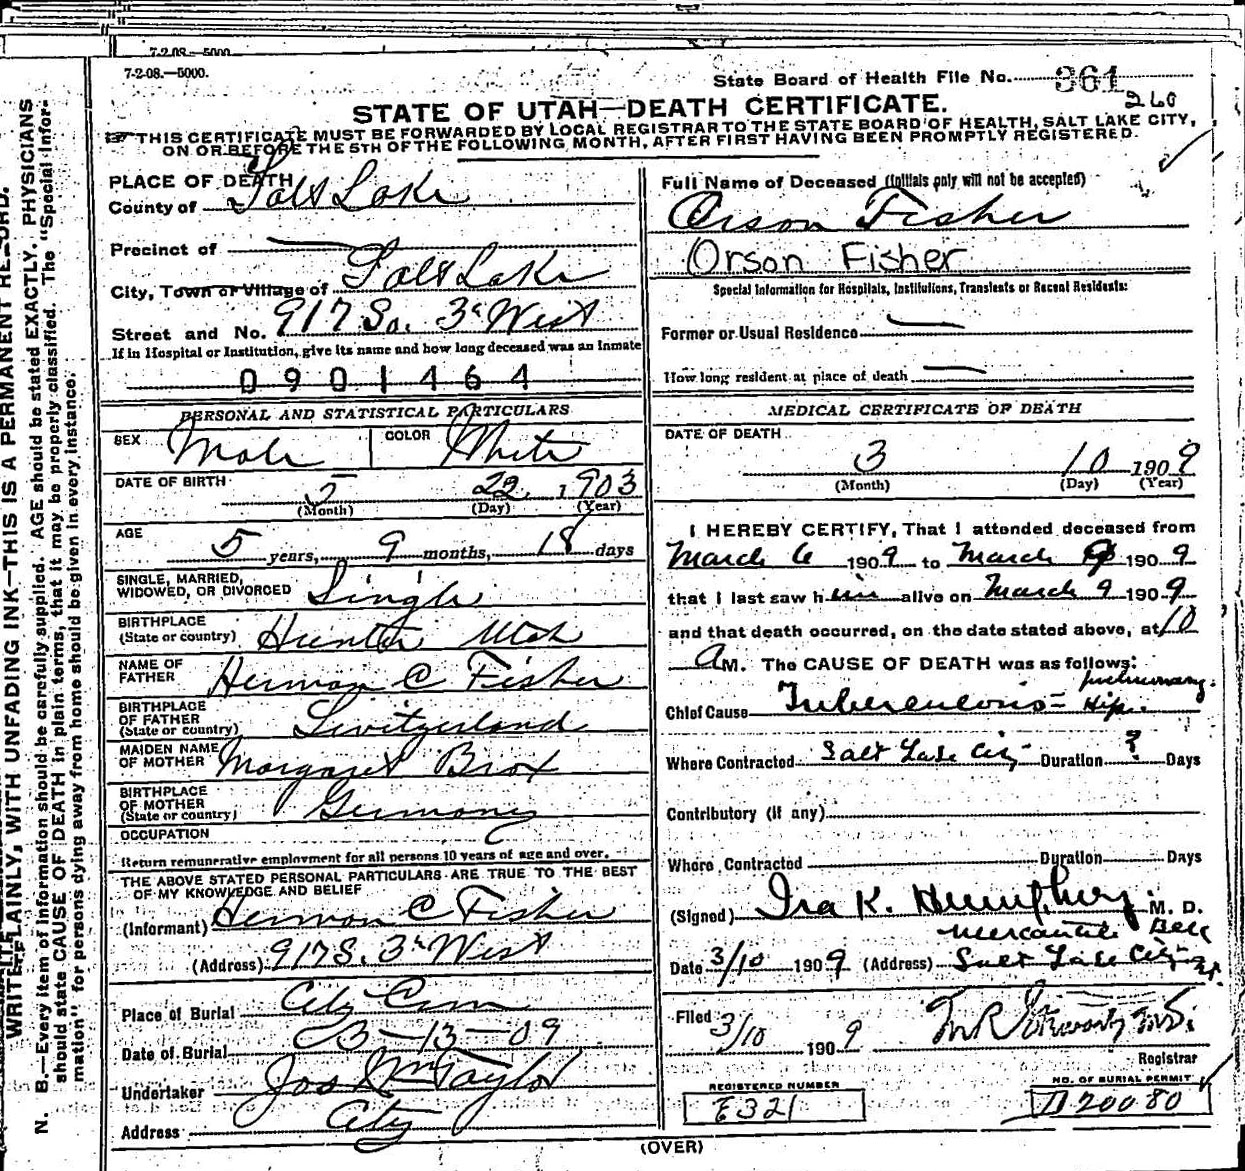 7-2-08.—5000.
7-2-08.—5000.
State Board of Health File No. 361
260
STATE OF UTAH—DEATH CERTIFICATE.
THIS CERTIFICATE MUST BE FORWARDED BY LOCAL REGISTRAR TO THE STATE BOARD OF HEALTH, SALT LAKE CITY,
ON OR BEFORE THE 5TH OF THE FOLLOWING MONTH, AFTER FIRST HAVING BEEN PROMPTLY REGISTERED.
PLACE OF DEATH
County of Salt Lake
Precinct of —
City, Town or Village of Salt Lake
Street and No. 917 So. 3d West
If in Hospital or Institution, give its name and how long deceased was an Inmate
0901464
PERSONAL AND STATISTICAL PARTICULARS
SEX Male COLOR White
DATE OF BIRTH 5 22, 1903
(Month) (Day) (Year)
AGE 5 years, 9 months, 18 days
SINGLE, MARRIED,
WIDOWED, OR DIVORCED Single
BIRTHPLACE
(State or country) Hunter Utah
NAME OF
FATHER Herman C Fisher
BIRTHPLACE
OF FATHER
(State or country) Switzerland
MAIDEN NAME
OF MOTHER Margaret Brox
BIRTHPLACE
OF MOTHER
(State or country) Germany
OCCUPATION
Return remunerative employment for all persons 10 years of age and over.
THE ABOVE STATED PERSONAL PARTICULARS ARE TRUE TO THE BEST
OF MY KNOWLEDGE AND BELIEF
(Informant) Herman C Fisher
(Address) 917 S. 3d West
Place of Burial City Cem
Date of Burial 3-13-09
Undertaker Jos Wm Taylor
Address City
Full Name of Deceased (Initials only will not be accepted)
Orson Fisher
Orson Fisher
Special Information for Hospitals, Institutions, Transients or Recent Residents:
Former or Usual Residence —
How long resident at place of death —
MEDICAL CERTIFICATE OF DEATH
DATE OF DEATH
3 10 1909
(Month) (Day) (Year)
I HEREBY CERTIFY, That I attended deceased from
March 6 1909 to March 9 1909
that I last saw him alive on March 9 1909
and that death occurred, on the date stated above, at 10
A M. The CAUSE OF DEATH was as follows:
pulmonary
Chief Cause Tuberculosis - Hip.
Where Contracted Salt Lake City Duration ? Days
Contributory (if any)
Where Contracted Duration Days
(Signed) Ira K. Humphrey M. D.
Mercantile
Date 3/10 1909 (Address) Salt Lake City
Filed 3/10 1909
Registrar
REGISTERED NUMBER
E321
NO. OF BURIAL PERMIT
D20080
(OVER)
WRITE PLAINLY, WITH UNFADING INK—THIS IS A PERMANENT RECORD.
N. B.—Every item of information should be carefully supplied. AGE should be stated EXACTLY. PHYSICIANS
should state CAUSE OF DEATH in plain terms, that it may be properly classified. The "Special Infor-
mation" for persons dying away from home should be given in every instance.